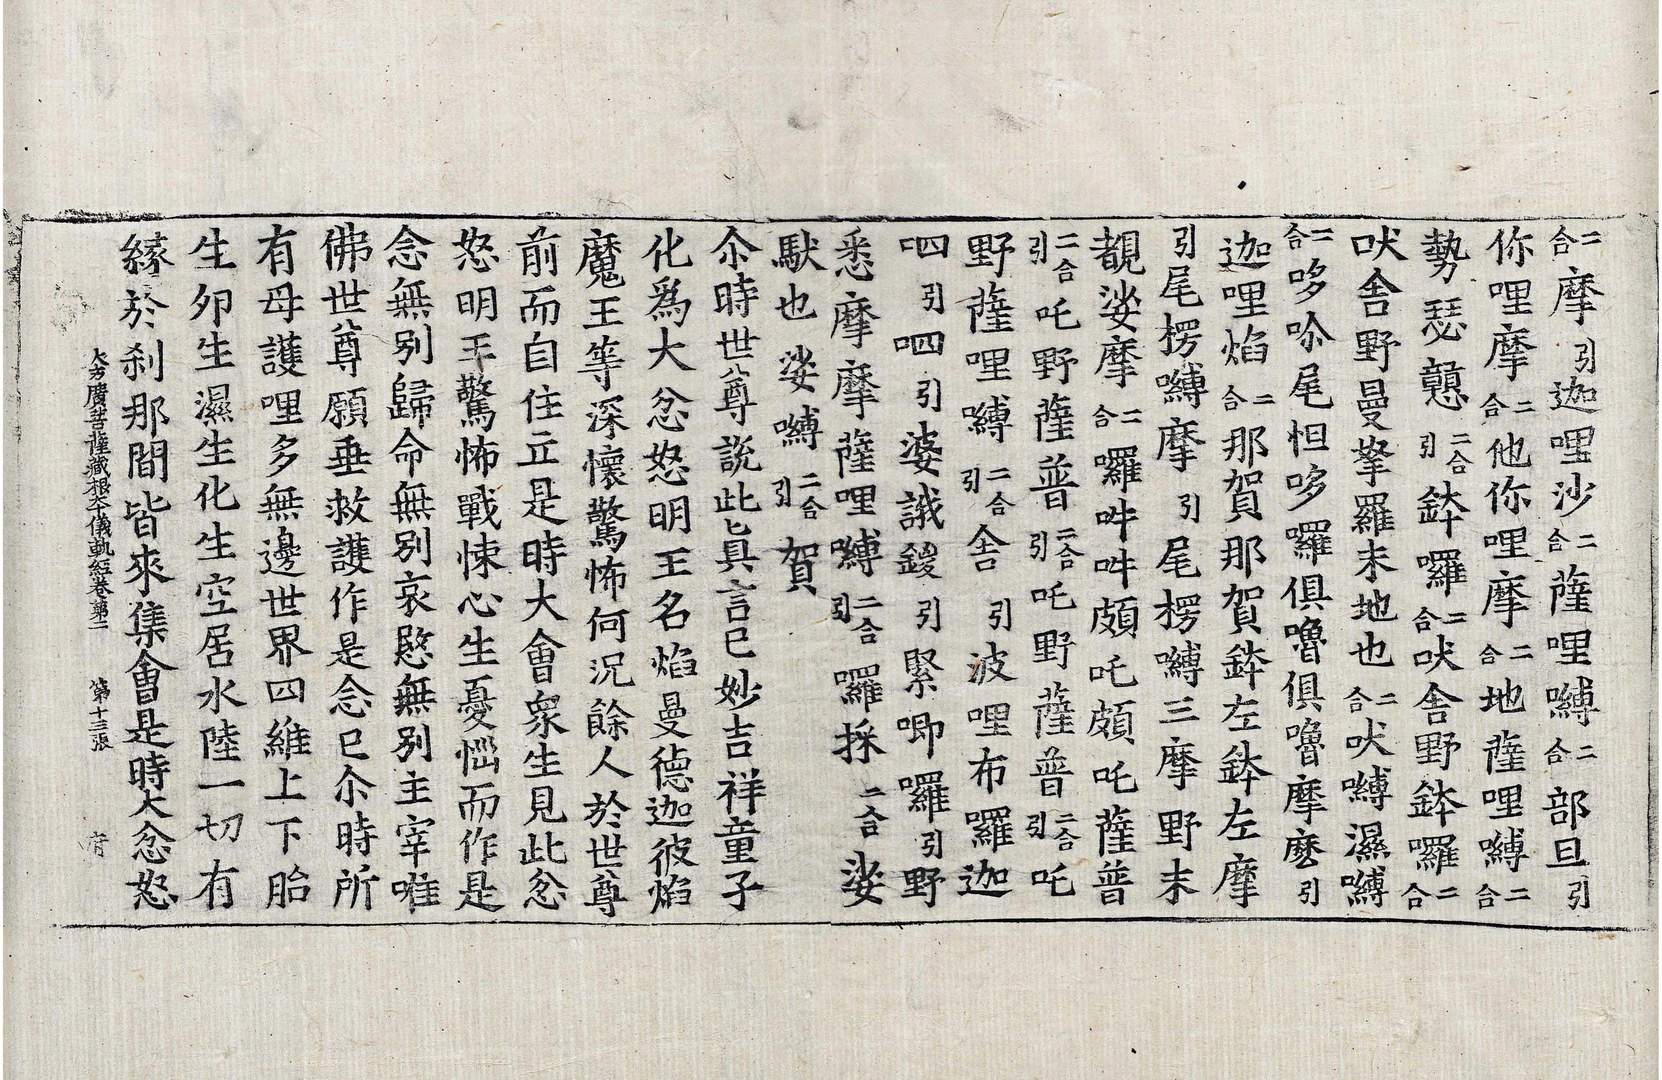 二合摩引迦哩沙二合薩哩嚩二合部旦引
你哩摩二合他你哩摩二合地薩哩嚩二合
勢瑟鸏二合引鉢囉二合吠舍野鉢囉二合
吠舍野曼拏羅末地也二合吠嚩濕嚩
二合哆尾怛哆囉俱嚕俱嚕摩麽引
迦哩焰二合那賀那賀鉢左鉢左摩
引尾楞嚩摩引尾楞嚩三摩野末
覩娑摩二合囉吽吽頗吒頗吒薩普
二合引吒野薩普二合引吒野薩普二合引吒
野薩哩嚩二合引舍引波哩布囉迦
呬引呬引婆誐鍐引緊唧囉引野
悉摩摩薩哩嚩二合引囉採二合娑
馱也娑嚩二合引賀
尒時世尊說此真言已妙吉祥童子
化爲大忿怒明王名焰曼德迦彼焰
魔王等深懷驚怖何況餘人於世尊
前而自住立是時大會衆生見此忿
怒明王驚怖戰悚心生憂惱而作是
念無別歸命無別哀愍無別主宰唯
佛世尊願垂救護作是念已尒時所
有母護哩多無邊世界四維上下胎
生夘生濕生化生空居水陸一切有
緣於刹那間皆來集會是時大忿怒
大方廣菩薩藏根本儀軌經卷第二 第十三張 府